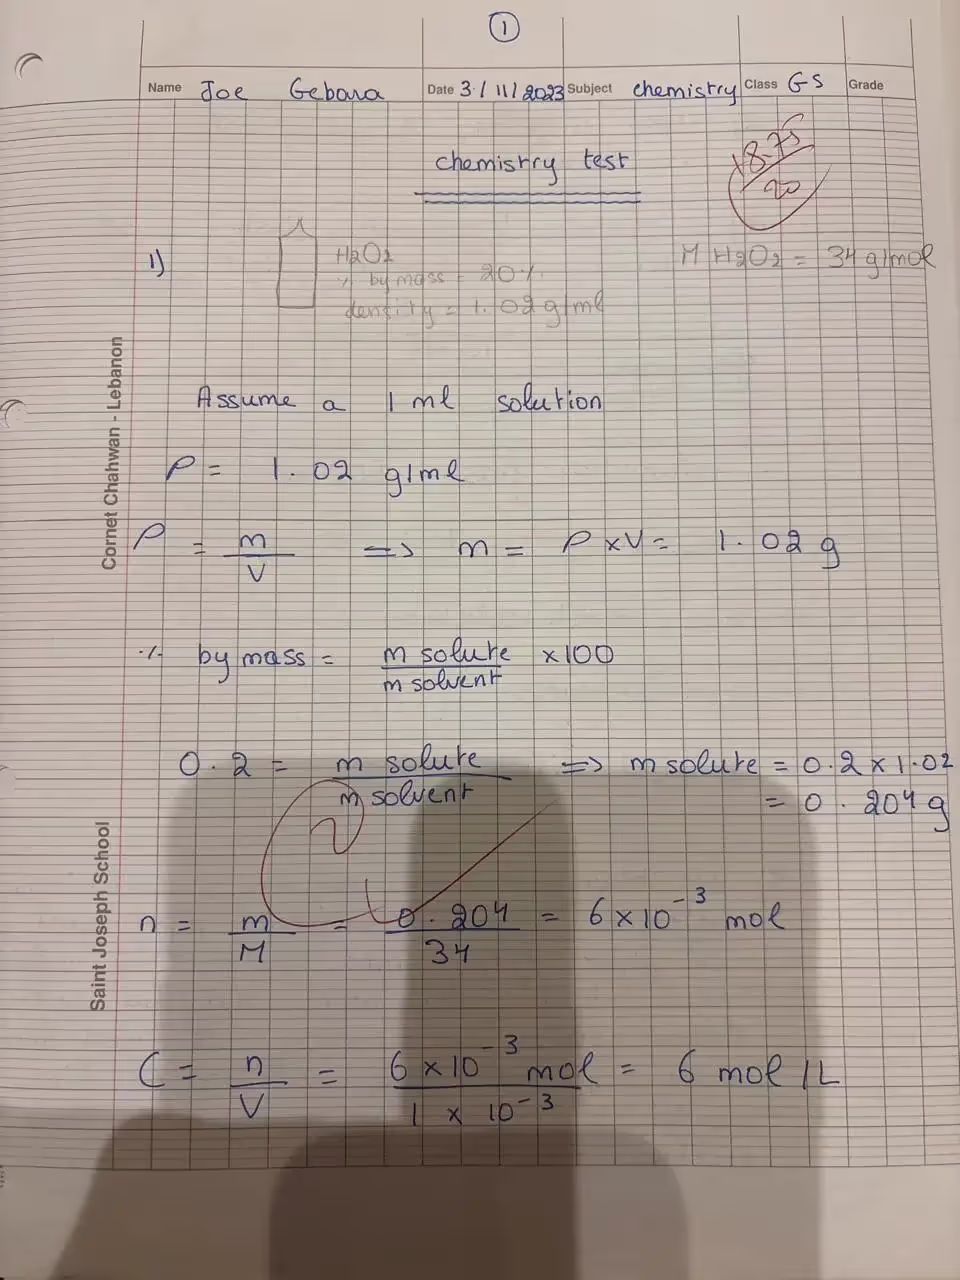 1
Name Joe Gebara Date 3/11/2023 Subject chemistry Class GS Grade
chemistry test
18.75
20
1)
H2O2
% by mass = 20%
density = 1.02 g/ml
M H2O2 = 34 g/mol
Assume a 1 ml solution
ρ = 1.02 g/ml
ρ = m/V => m = ρ x V = 1.02 g
% by mass = m solute/m solvent x100
0.2 = m solute/m solvent => m solute = 0.2 x 1.02
= 0.204 g
2
n = m/M = 0.204/34 = 6 x 10⁻³ mol
C = n/V = 6 x 10⁻³ mol/1 x 10⁻³ = 6 mol/L
Cornet Chahwan - Lebanon
Saint Joseph School